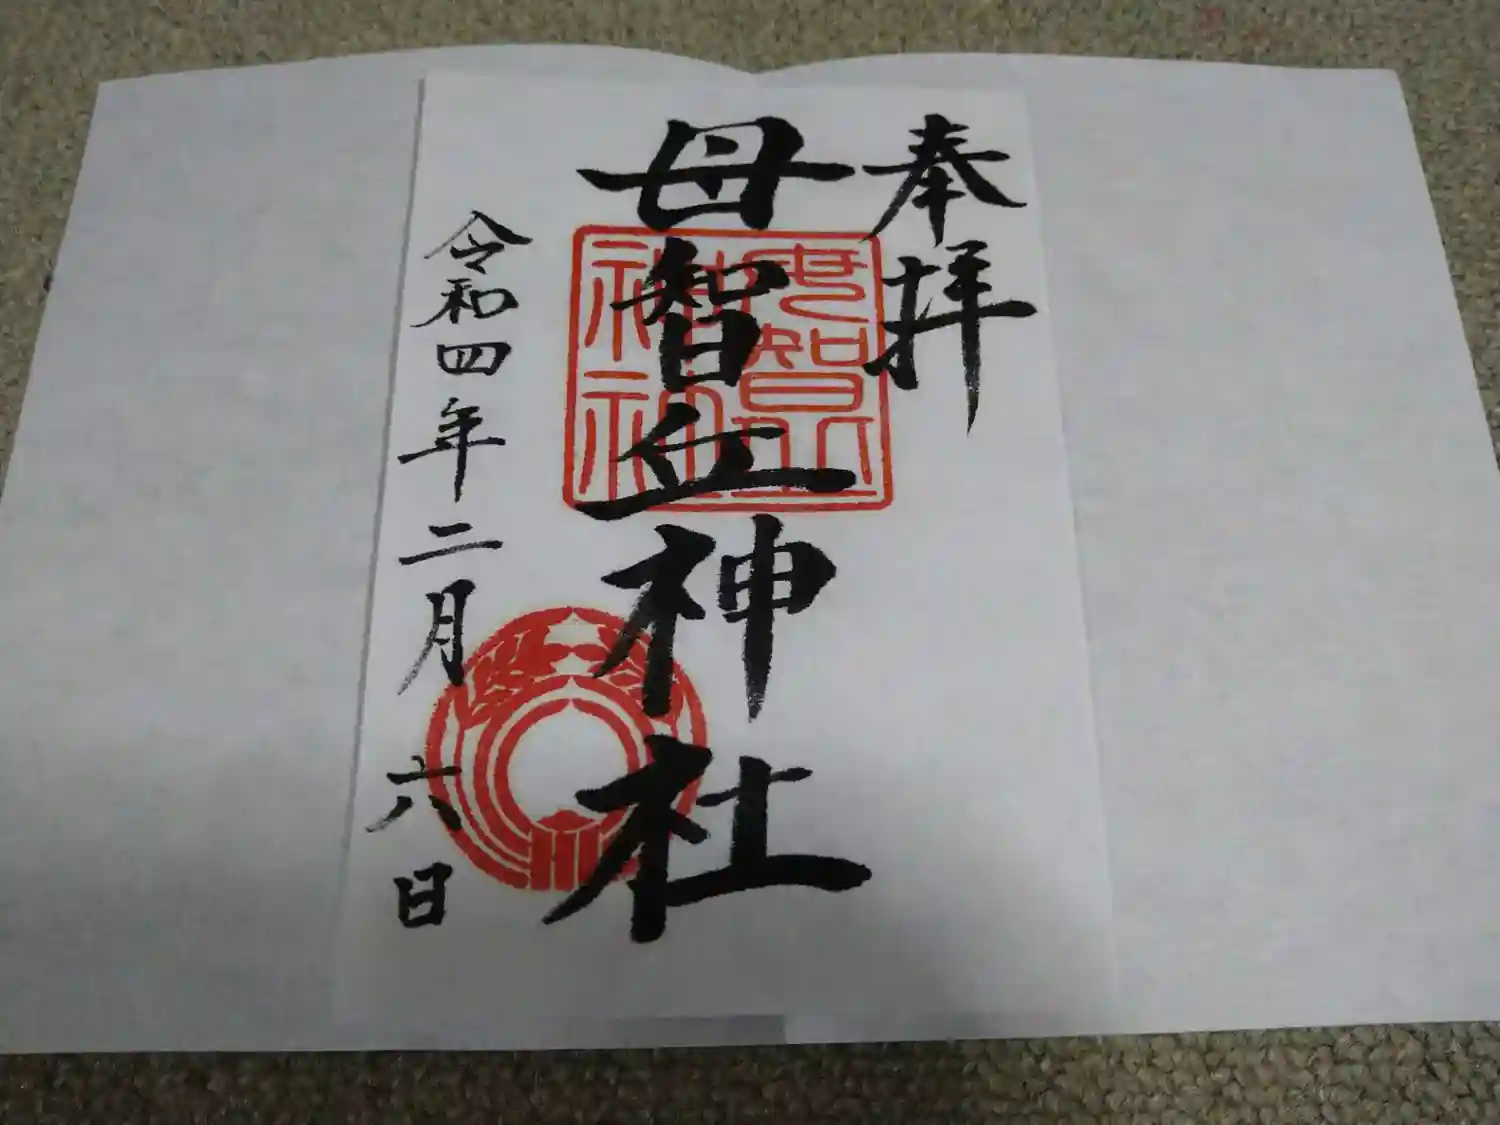 奉拝
母智丘神社
令和四年二月六日
母智丘
神社